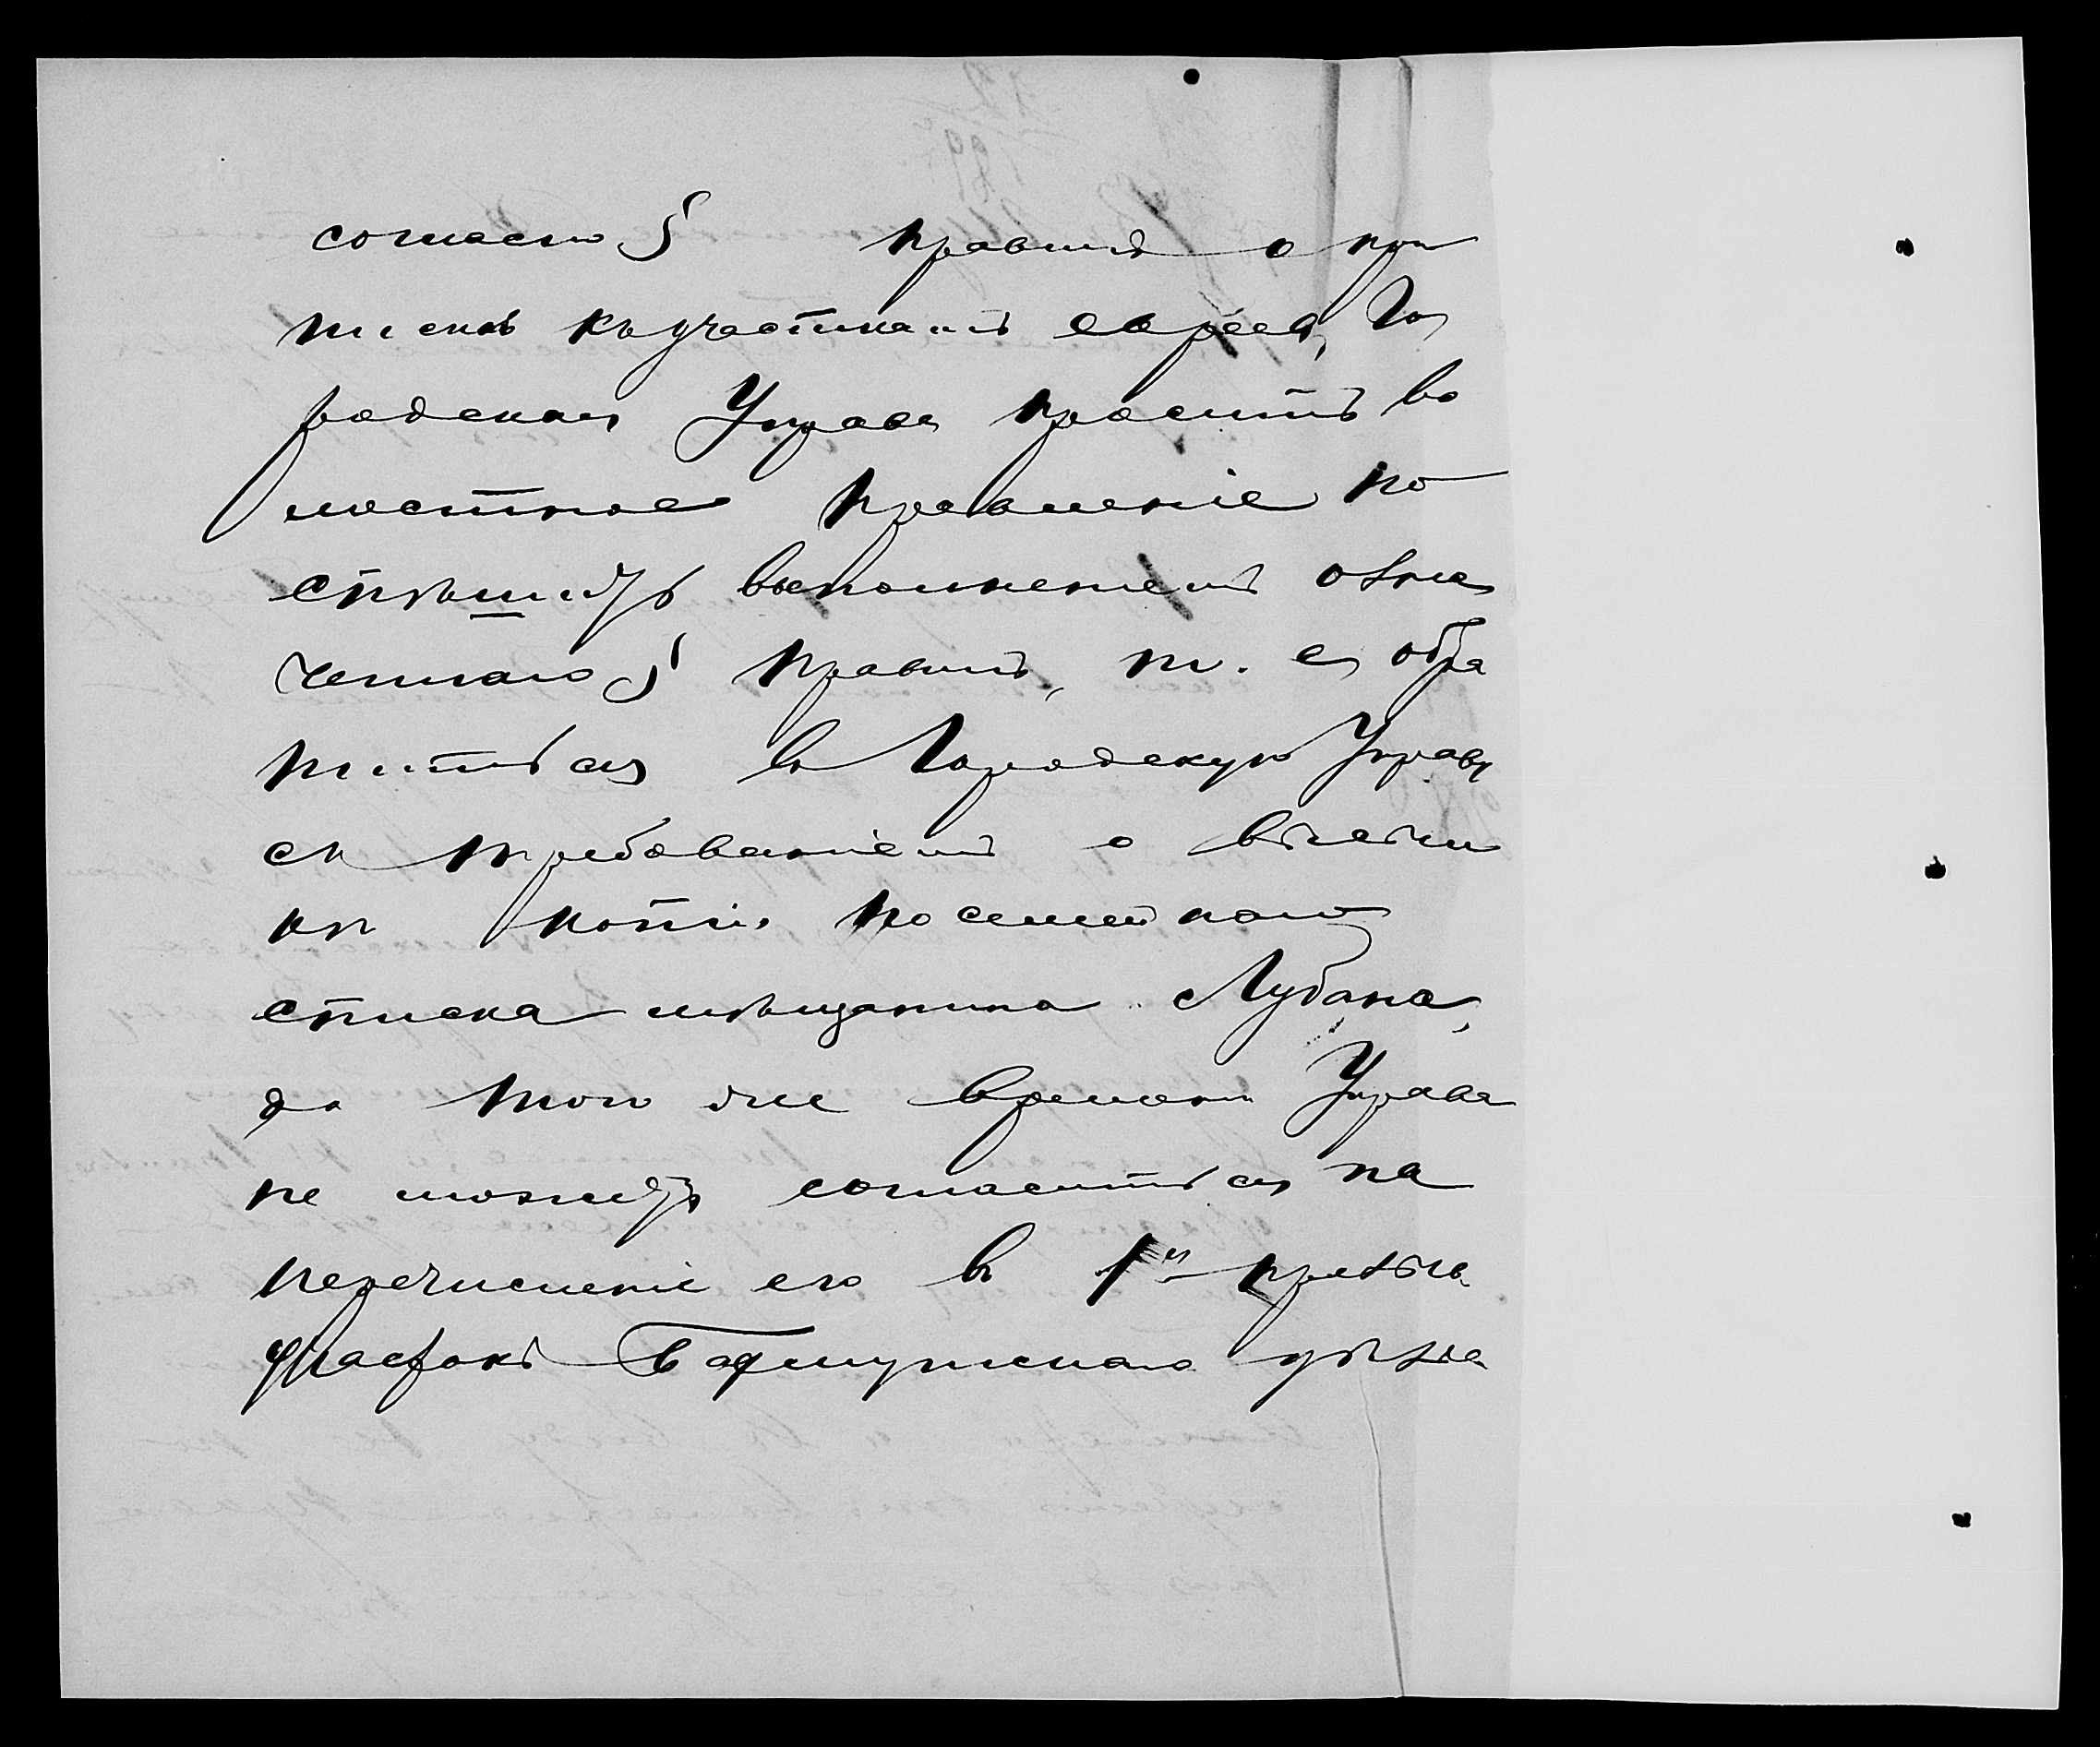 согласно § правилъ о при
пискѣ къ участкамъ евреевъ, Го
родская Управа проситъ во
лостное правленіе по
спѣшить выполненіемъ озна
ченнаго § правилъ, т. е. обра
титься въ Городскую Управу
съ требованіемъ о высыл
кѣ копіи посемейнаго
списка мѣщанина Лубана,
до того же времени Управа
не можетъ согласиться на
перечисленіе его въ 1й призыв.
участокъ Бахмутскаго уѣзда